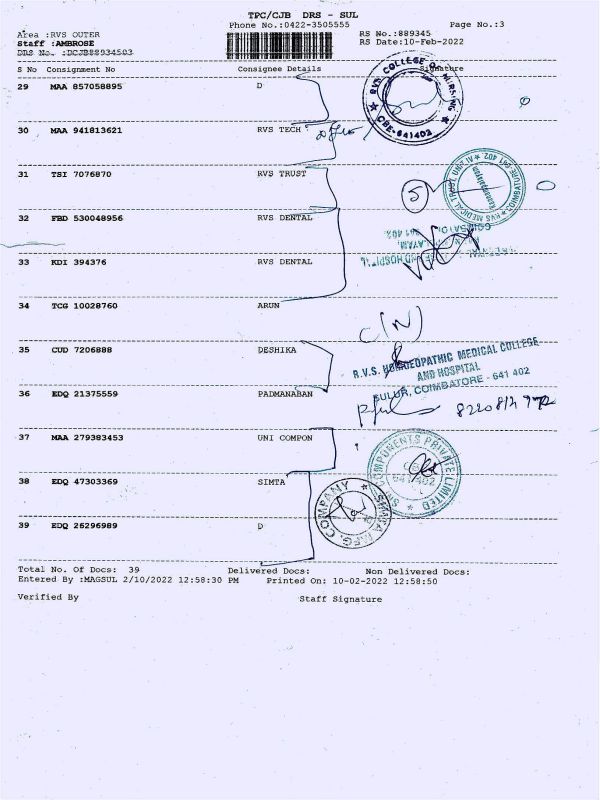 TPC/CJB DRS - SUL
Phone No.:0422-3505555 Page No.:3
Area :RVS OUTER RS No.:889345
Staff :AMBROSE RS Date:10-Feb-2022
DRS No. :DCJB88934503
S No Consignment No Consignee Details Signature
29 MAA 857058895 D
RVS COLLEGE OF NURSING
CBE-641402
30 MAA 941813621 RVS TECH
31 TSI 7076870 RVS TRUST
5
RVS MEDICAL TRUST
COIMBATORE
32 FBD 530048956 RVS DENTAL
33 KDI 394376 RVS DENTAL
34 TCG 10028760 ARUN
C(N)
35 CUD 7206888 DESHIKA
R.V.S. HOMOEOPATHIC MEDICAL COLLEGE
AND HOSPITAL
SULUR, COIMBATORE - 641 402
36 EDQ 21375559 PADMANABAN
37 MAA 279383453 UNI COMPON
COMPONENTS PRIVATE LIMITED
641402
38 EDQ 47303369 SIMTA
SIMTA MFG. COMPANY
39 EDQ 26296989 D
Total No. Of Docs: 39 Delivered Docs: Non Delivered Docs:
Entered By :MAGSUL 2/10/2022 12:58:30 PM Printed On: 10-02-2022 12:58:50
Verified By Staff Signature